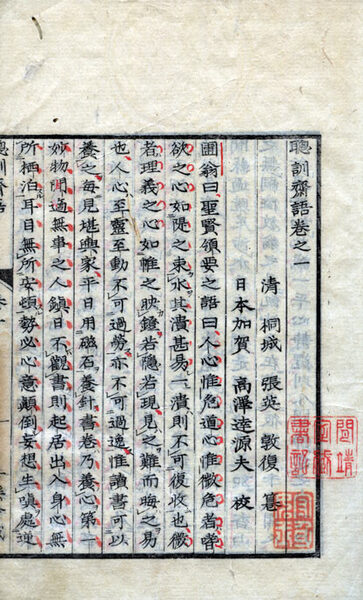 聰訓齋語卷之一
清 桐城 張英 敦復 纂
日本加賀 高澤 源夫 校
圃翁曰聖賢領要之語曰人心惟危道心惟微危者嗜
欲之心如隄之束水其潰甚易一潰則不可復收也微
者理義之心如帷之映鐙若隱若現見之難而晦之易
也人心至靈至動不可過勞亦不可過逸惟讀書可以
養之每見堪輿家平日用磁石養針書卷乃養心第一
妙物閒適無事之人鎮日不觀書則起居出入身心無
所栖泊耳目無所安頓勢必心意顛倒妄想生嗔處逆
聰訓齋語